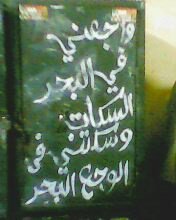 واجعني
في البحر
السكات
وسكتني في
الوجع البحر